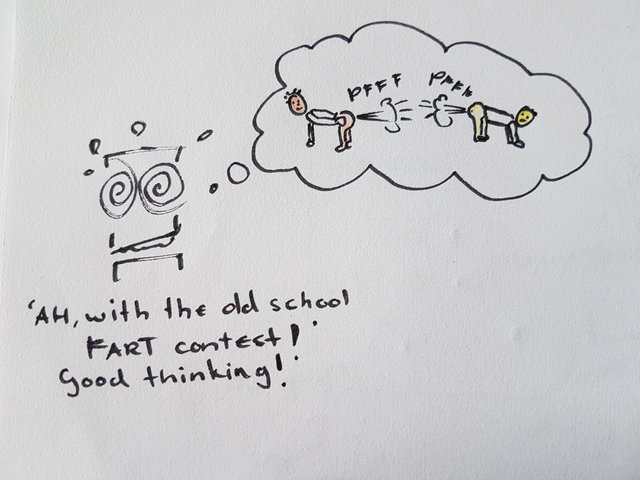 PFFF PFFF
'AH, with the old school
FART contest!'
Good thinking!'